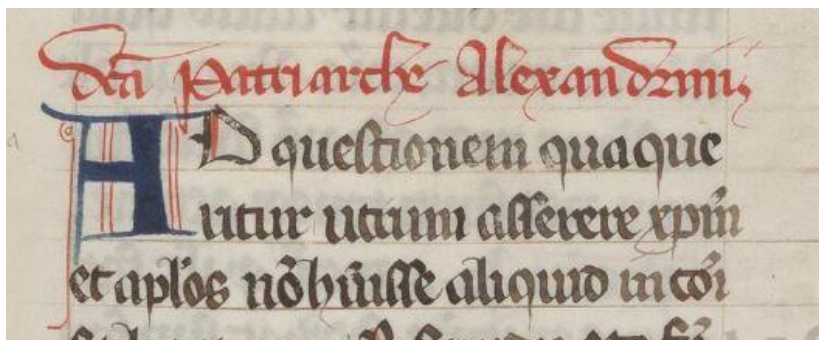 dc̄i Patriarche Alexandrini
AD questionem qua que
ritur utrum asserere xp̄m
et apl̄os nō hūisse aliquid in cōi